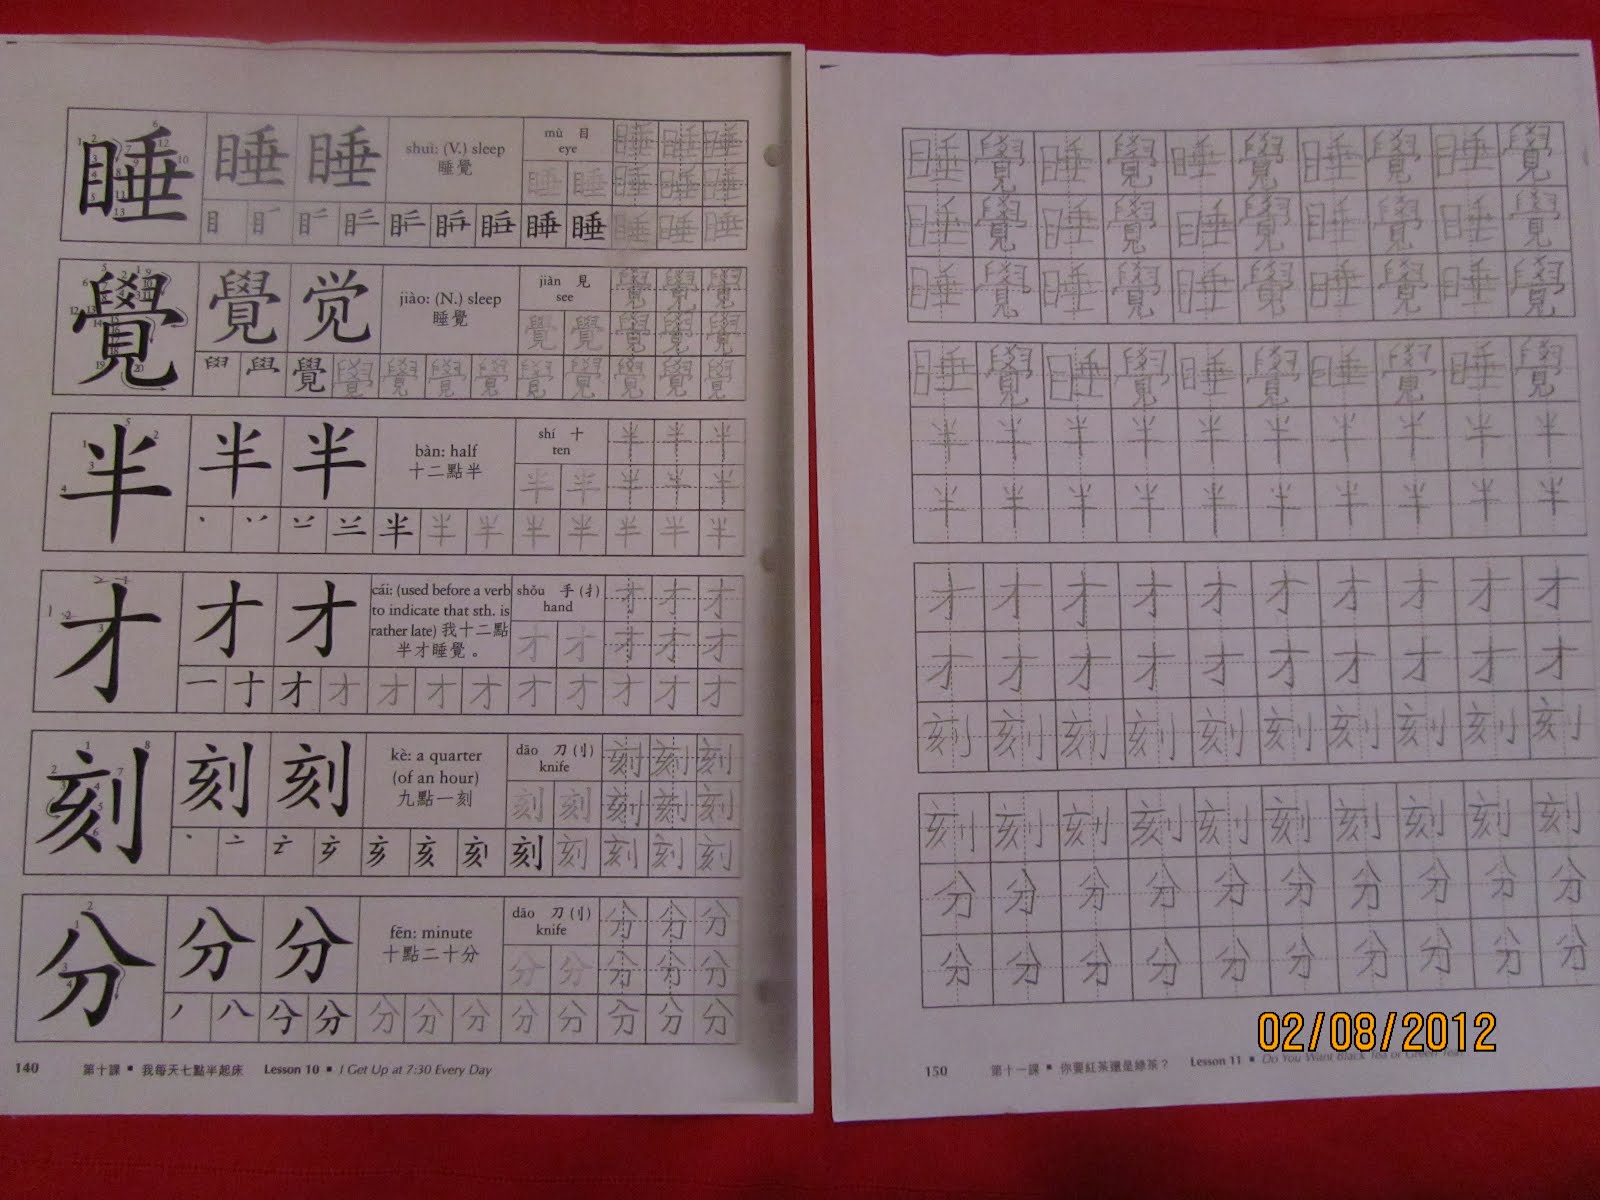 睡 睡 睡 shuì: (V.) sleep mù 目 睡 睡 睡
睡覺 eye
睡 睡 睡 睡 睡
睡 睡 睡 睡 睡
覺 覺 觉 jiào: (N.) sleep jiàn 見 覺 覺 覺
睡覺 see
覺 覺 覺 覺 覺
覺 覺 覺 覺 覺 覺 覺 覺 覺 覺
半 半 半 bàn: half shí 十 半 半 半
十二點半 ten
半 半 半 半 半
半 半 半 半 半 半 半 半
才 才 才 cái: (used before a verb shǒu 手 (扌) 才 才 才
to indicate that sth. is hand
rather late) 我十二點 才 才 才 才 才
半才睡覺。
一 十 才 才 才 才 才 才 才 才 才 才
刻 刻 刻 kè: a quarter dāo 刀 (刂) 刻 刻 刻
(of an hour) knife
九點一刻 刻 刻 刻 刻 刻
刻 刻 刻 刻 刻
分 分 分 fēn: minute dāo 刀 (刂) 分 分 分
十點二十分 knife
分 分 分 分 分
八 分 分 分 分 分 分 分 分 分
140 第十課 ▪ 我每天七點半起床 Lesson 10 ▪ I Get Up at 7:30 Every Day
睡 覺 睡 覺 睡 覺 睡 覺 睡 覺
睡 覺 睡 覺 睡 覺 睡 覺 睡 覺
睡 覺 睡 覺 睡 覺 睡 覺 睡 覺
睡 覺 睡 覺 睡 覺 睡 覺 睡 覺
半 半 半 半 半 半 半 半 半 半
半 半 半 半 半 半 半 半 半 半
才 才 才 才 才 才 才 才 才 才
才 才 才 才 才 才 才 才 才 才
刻 刻 刻 刻 刻 刻 刻 刻 刻 刻
刻 刻 刻 刻 刻 刻 刻 刻 刻 刻
分 分 分 分 分 分 分 分 分 分
分 分 分 分 分 分 分 分 分 分
02/08/2012
150 第十一課 ▪ 你要紅茶還是綠茶？ Lesson 11 ▪ Do You Want Black Tea or Green Tea?